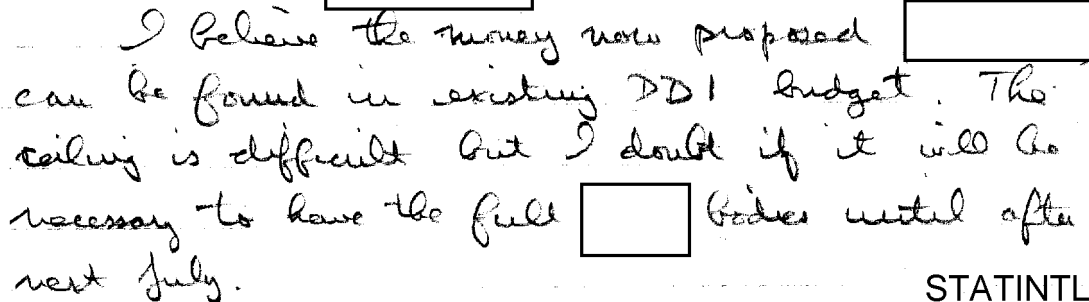 I believe the money now proposed
can be found in existing DDI budget. The
ceiling is difficult but I doubt if it will be
necessary to have the full bodies until after
next July.
STATINTL